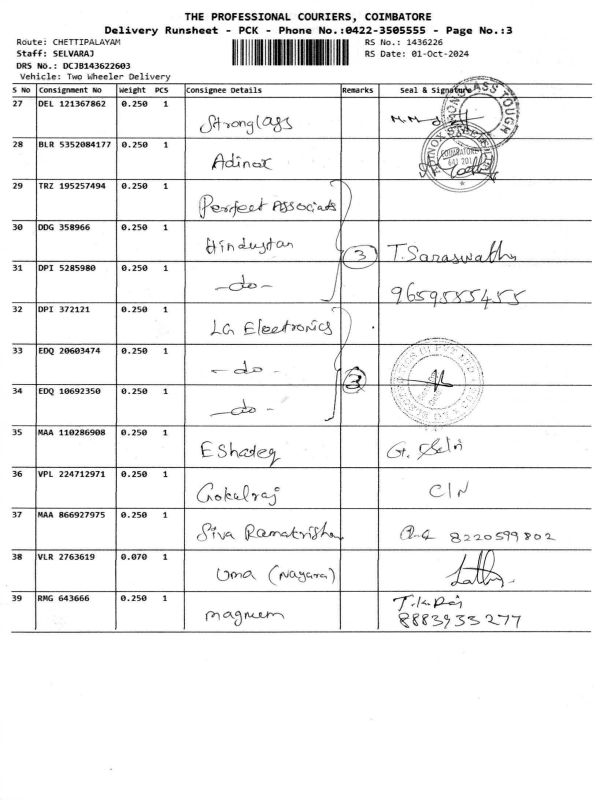 THE PROFESSIONAL COURIERS, COIMBATORE
Delivery Runsheet - PCK - Phone No.:0422-3505555 - Page No.:3
Route: CHETTIPALAYAM RS No.: 1436226
Staff: SELVARAJ RS Date: 01-Oct-2024
DRS No.: DCJB143622603
Vehicle: Two Wheeler Delivery
S No Consignment No Weight PCS Consignee Details Remarks Seal & Signature
27 DEL 121367862 0.250 1
Strong lass
28 BLR 5352084177 0.250 1
Adinox
29 TRZ 195257494 0.250 1
Perfect Associats
30 DDG 358966 0.250 1
Hindustan 3 T. Saraswathi
31 DPI 5285980 0.250 1
-do- 9659585455
32 DPI 372121 0.250 1
LG Electronics
33 EDQ 20603474 0.250 1
-do- 3
34 EDQ 10692350 0.250 1
-do-
35 MAA 110286908 0.250 1
36 VPL 224712971 0.250 1
Gokulraj C/N
37 MAA 866927975 0.250 1
Siva Ramakrishn 8220599802
38 VLR 2763619 0.070 1
Uma (Nagara)
39 RMG 643666 0.250 1
magnum 8883933277